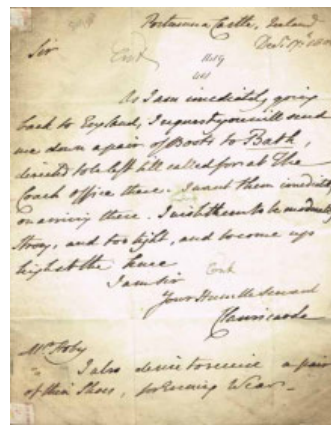 Portumna Castle, Ireland
Decr. 17th
Sir
As I am imediately going
back to England, I request you will send
me down a pair of Boots to Bath,
directed to be left till called for at The
Coach office there. I want them imediately
on arriving there. I wish them to be made
Strong, and too tight, and to come up
high at the knee
I am Sir
Your Humble Servant
Clanricarde
Mr. Hoby
I also desire to receive a pair
of thin Shoes, for Evening Wear